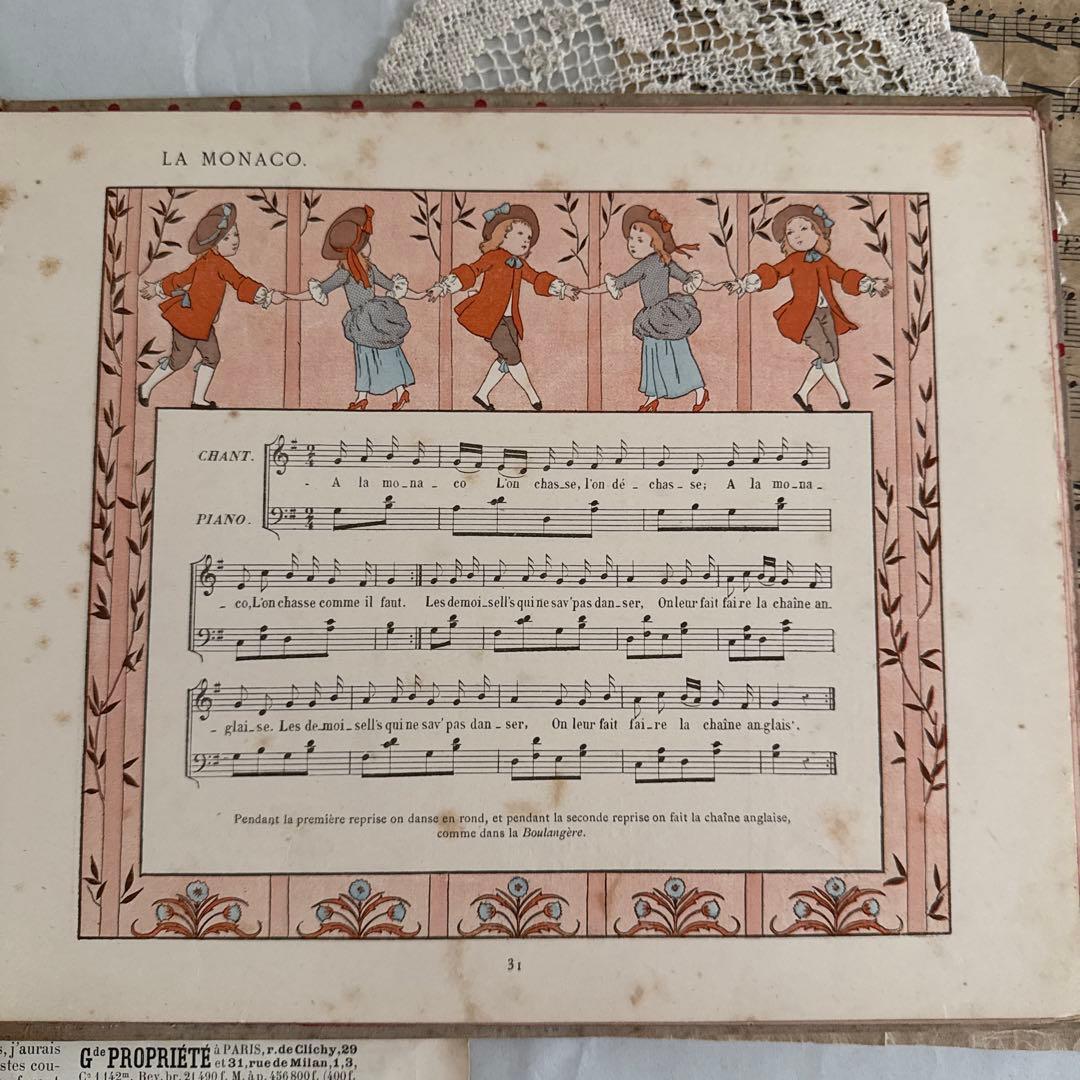 LA MONACO.
CHANT.
- A la mo_na_co L'on chas_se, l'on dé_chas_se; A la mo_na_
PIANO.
_co, L'on chasse comme il faut. Les demoi_sell's qui ne sav' pas dan_ser, On leur fait faire la chaîne an_
_glai_se. Les de_moi_sell's qui ne sav' pas dan_ser, On leur fait fai_re la chaîne anglais'.
Pendant la première reprise on danse en rond, et pendant la seconde reprise on fait la chaîne anglaise,
comme dans la Boulangère.
31
s, j'aurais
stes cou-
Gde PROPRIÉTÉ à PARIS, r. de Clichy, 29
et 31, rue de Milan, 1, 3,
Ce 1142m. Rev. br. 21490 f. M. à p. 456800 f. (400 f.